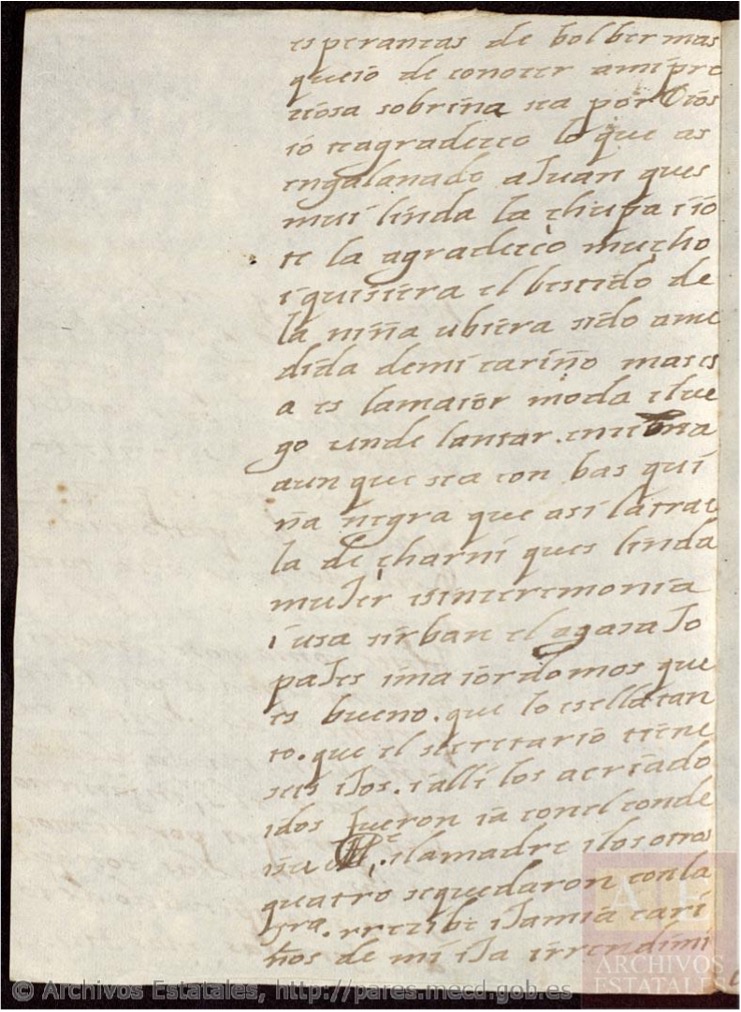 esperansas de bolber mas
que io de conoser a mi pre
siosa sobrina sea por Dios
io te agradesco lo que as
engalanado a Juan ques
mui linda la chupa i io
te la agradesco mucho
i quisiera el bestido de
la niña ubiera sido a me
dida de mi cariño mas es
a es la maior moda i lue
go un de lansar.
aun que sea con bas qui
ña negra que asi la trai
la de charni ques linda
muJer i sin seremonia
i usa sirban el agasaJo
paJes i maiordomos que
es bueno. que lo es ella tan
to. que el secretario tiene
seis iJos. i alli los a criado
i dos fueron ia con el conde
i su i la madre i los otros
quatro se quedaron con la
sra. rrezibe iJa mia cari
ños de mi iJa i rrendimi
© Archivos Estatales, http://pares.mecd.gob.es
AE
ARCHIVOS
ESTATALES